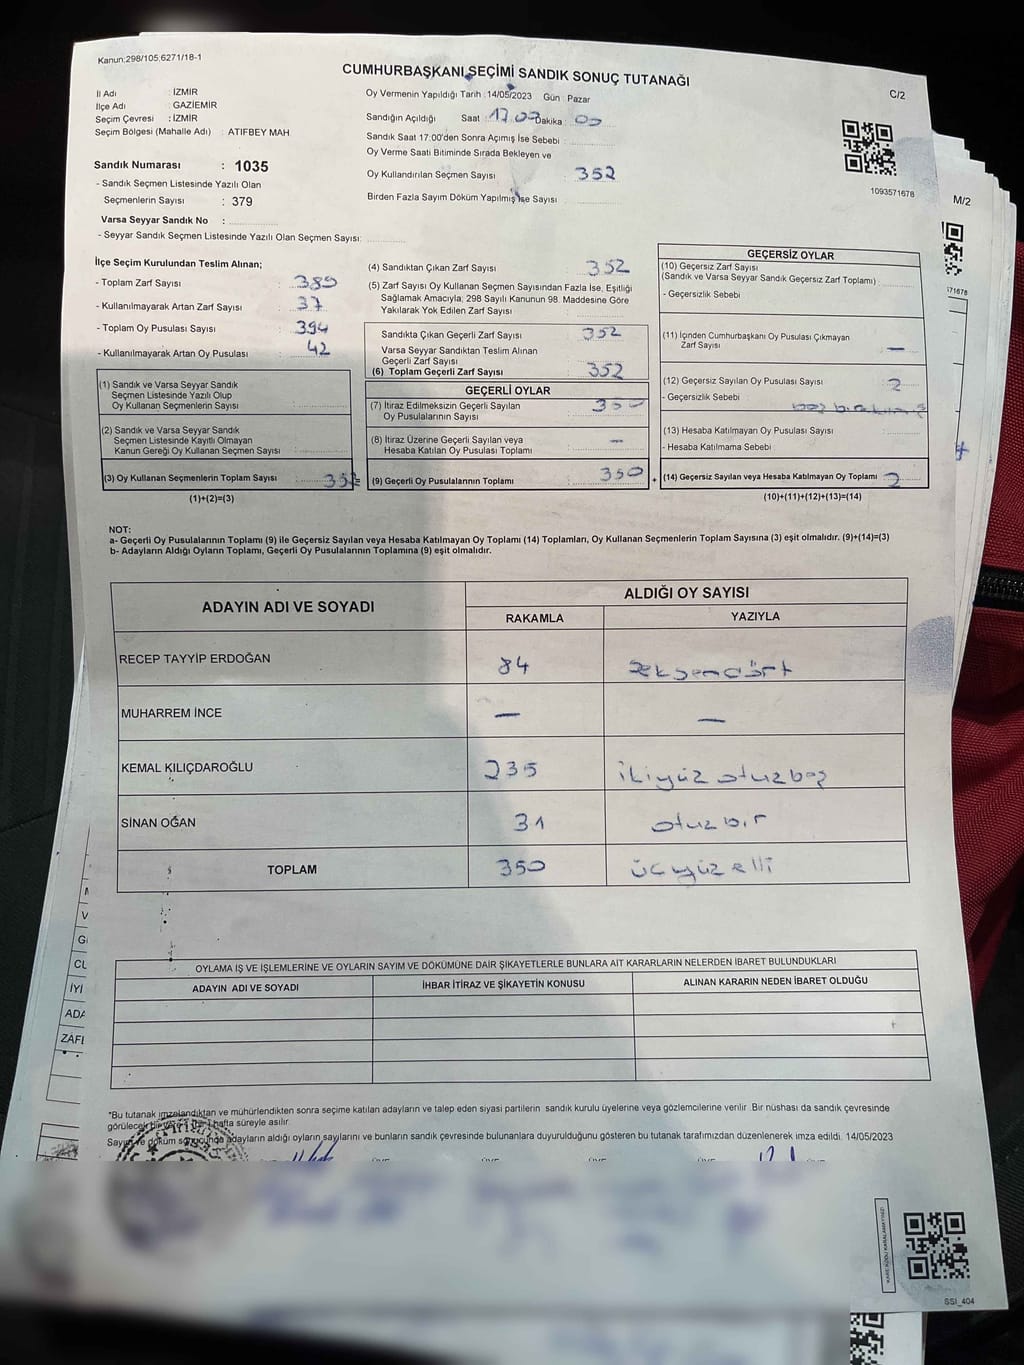 Kanun:298/105,6271/18-1
CUMHURBAŞKANI SEÇİMİ SANDIK SONUÇ TUTANAĞI
C/2
İl Adı : İZMİR
İlçe Adı : GAZİEMİR
Seçim Çevresi : İZMİR
Seçim Bölgesi (Mahalle Adı) : ATIFBEY MAH.
Oy Vermenin Yapıldığı Tarih : 14/05/2023 Gün : Pazar
Sandığın Açıldığı Saat : 17.00 Dakika : 00
Sandık Saat 17:00'den Sonra Açımış İse Sebebi :
Oy Verme Saati Bitiminde Sırada Bekleyen ve
Oy Kullandırılan Seçmen Sayısı : 352
Birden Fazla Sayım Döküm Yapılmış İse Sayısı :
1093571678
M/2
Sandık Numarası : 1035
- Sandık Seçmen Listesinde Yazılı Olan
Seçmenlerin Sayısı : 379
Varsa Seyyar Sandık No :
- Seyyar Sandık Seçmen Listesinde Yazılı Olan Seçmen Sayısı:
İlçe Seçim Kurulundan Teslim Alınan;
- Toplam Zarf Sayısı : 389
- Kullanılmayarak Artan Zarf Sayısı : 37
- Toplam Oy Pusulası Sayısı : 394
- Kullanılmayarak Artan Oy Pusulası : 42
(1) Sandık ve Varsa Seyyar Sandık
Seçmen Listesinde Yazılı Olup
Oy Kullanan Seçmenlerin Sayısı :
(2) Sandık ve Varsa Seyyar Sandık
Seçmen Listesinde Kayıtlı Olmayan
Kanun Gereği Oy Kullanan Seçmen Sayısı :
(3) Oy Kullanan Seçmenlerin Toplam Sayısı : 352 =
(1)+(2)=(3)
(4) Sandıktan Çıkan Zarf Sayısı : 352
(5) Zarf Sayısı Oy Kullanan Seçmen Sayısından Fazla İse, Eşitliği
Sağlamak Amacıyla; 298 Sayılı Kanunun 98. Maddesine Göre
Yakılarak Yok Edilen Zarf Sayısı :
Sandıkta Çıkan Geçerli Zarf Sayısı : 352
Varsa Seyyar Sandıktan Teslim Alınan
Geçerli Zarf Sayısı :
(6) Toplam Geçerli Zarf Sayısı : 352
GEÇERLİ OYLAR
(7) İtiraz Edilmeksizin Geçerli Sayılan
Oy Pusulalarının Sayısı : 350
(8) İtiraz Üzerine Geçerli Sayılan veya
Hesaba Katılan Oy Pusulası Toplamı : —
(9) Geçerli Oy Pusulalarının Toplamı : 350 +
GEÇERSİZ OYLAR
(10) Geçersiz Zarf Sayısı
(Sandık ve Varsa Seyyar Sandık Geçersiz Zarf Toplamı) :
- Geçersizlik Sebebi :
(11) İçinden Cumhurbaşkanı Oy Pusulası Çıkmayan
Zarf Sayısı : —
(12) Geçersiz Sayılan Oy Pusulası Sayısı : 2
- Geçersizlik Sebebi :
(13) Hesaba Katılmayan Oy Pusulası Sayısı :
- Hesaba Katılmama Sebebi :
(14) Geçersiz Sayılan veya Hesaba Katılmayan Oy Toplamı : 2
(10)+(11)+(12)+(13)=(14)
NOT:
a- Geçerli Oy Pusulalarının Toplamı (9) ile Geçersiz Sayılan veya Hesaba Katılmayan Oy Toplamı (14) Toplamları, Oy Kullanan Seçmenlerin Toplam Sayısına (3) eşit olmalıdır. (9)+(14)=(3)
b- Adayların Aldığı Oyların Toplamı, Geçerli Oy Pusulalarının Toplamına (9) eşit olmalıdır.
ADAYIN ADI VE SOYADI
ALDIĞI OY SAYISI
RAKAMLA YAZIYLA
RECEP TAYYİP ERDOĞAN 84 seksendört
MUHARREM İNCE — —
KEMAL KILIÇDAROĞLU 235 ikiyüz otuzbeş
SİNAN OĞAN 31 otuzbir
TOPLAM 350 üçyüz elli
OYLAMA İŞ VE İŞLEMLERİNE VE OYLARIN SAYIM VE DÖKÜMÜNE DAİR ŞİKAYETLERLE BUNLARA AİT KARARLARIN NELERDEN İBARET BULUNDUKLARI
ADAYIN ADI VE SOYADI İHBAR İTİRAZ VE ŞİKAYETİN KONUSU ALINAN KARARIN NEDEN İBARET OLDUĞU
*Bu tutanak imzalandıktan ve mühürlendikten sonra seçime katılan adayların ve talep eden siyasi partilerin sandık kurulu üyelerine veya gözlemcilerine verilir. Bir nüshası da sandık çevresinde
görülecek bir yere 1 (bir) hafta süreyle asılır.
Sayım ve döküm sonucunda adayların aldığı oyların sayılarını ve bunların sandık çevresinde bulunanlara duyurulduğunu gösteren bu tutanak tarafımızdan düzenlenerek imza edildi. 14/05/2023
SSI_404
İYİ
ADA